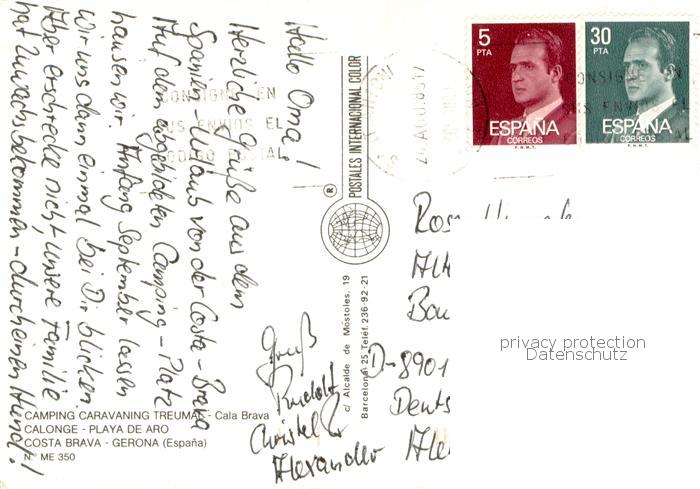 Hallo Oma!
Herzliche Grüße aus dem
Spanien-Urlaub von der Costa-Brava
Auf dem abgebildeten Camping-Platz
hausen wir. Anfang September lassen
wir uns dann einmal bei Dir blicken.
Aber erschrecke nicht, unsere Familie
hat Zuwachs bekommen - durch einen Hund!
Gruß
Rudolf
Christel
Alexander
CAMPING CARAVANING TREUMAL - Cala Brava
CALONGE - PLAYA DE ARO
COSTA BRAVA - GERONA (España)
N.° ME 350
POSTALES INTERNACIONAL COLOR
®
c/ Alcalde de Móstoles, 19
Barcelona-25, Teléf. 236-92-21
CONSIGNE EN
SUS ENVIOS EL
CODIGO POSTAL
5
PTA
ESPAÑA
CORREOS
F.N.M.T.
30
PTA
ESPAÑA
CORREOS
F.N.M.T.
D-8901
privacy protection
Datenschutz